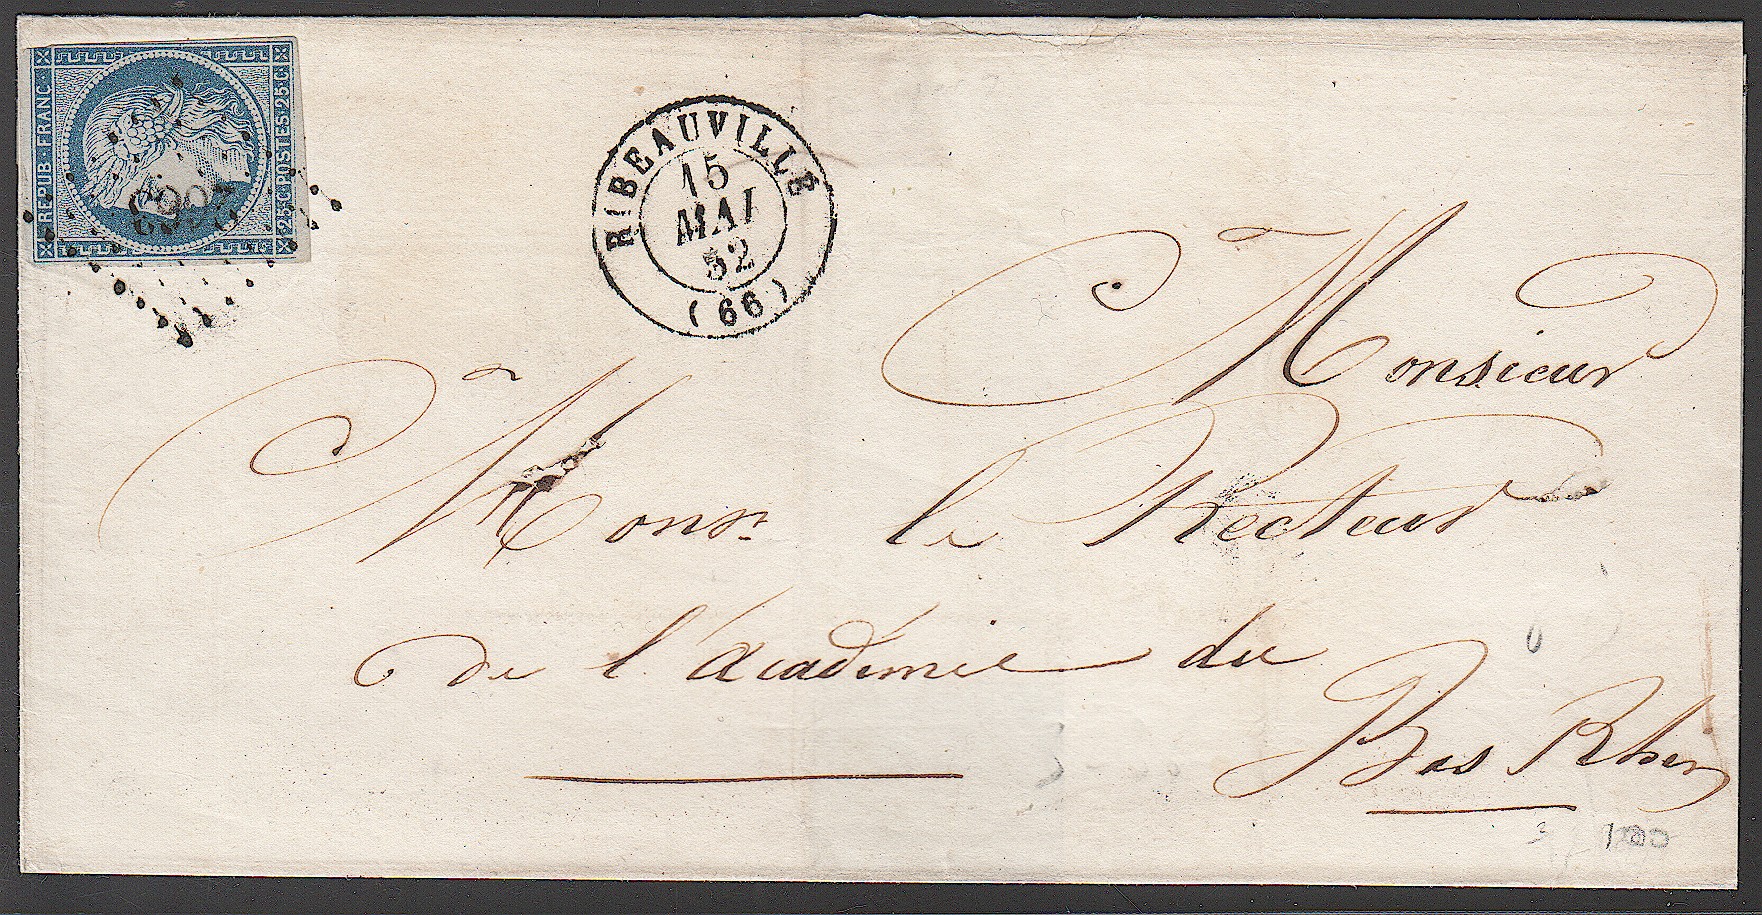 REPUB. FRANC.
25.C. POSTES 25.C
2663
RIBEAUVILLÉ
15
MAI
52
(66)
Monsieur
Monsr le Recteur
de l'académie du
Bas Rhin